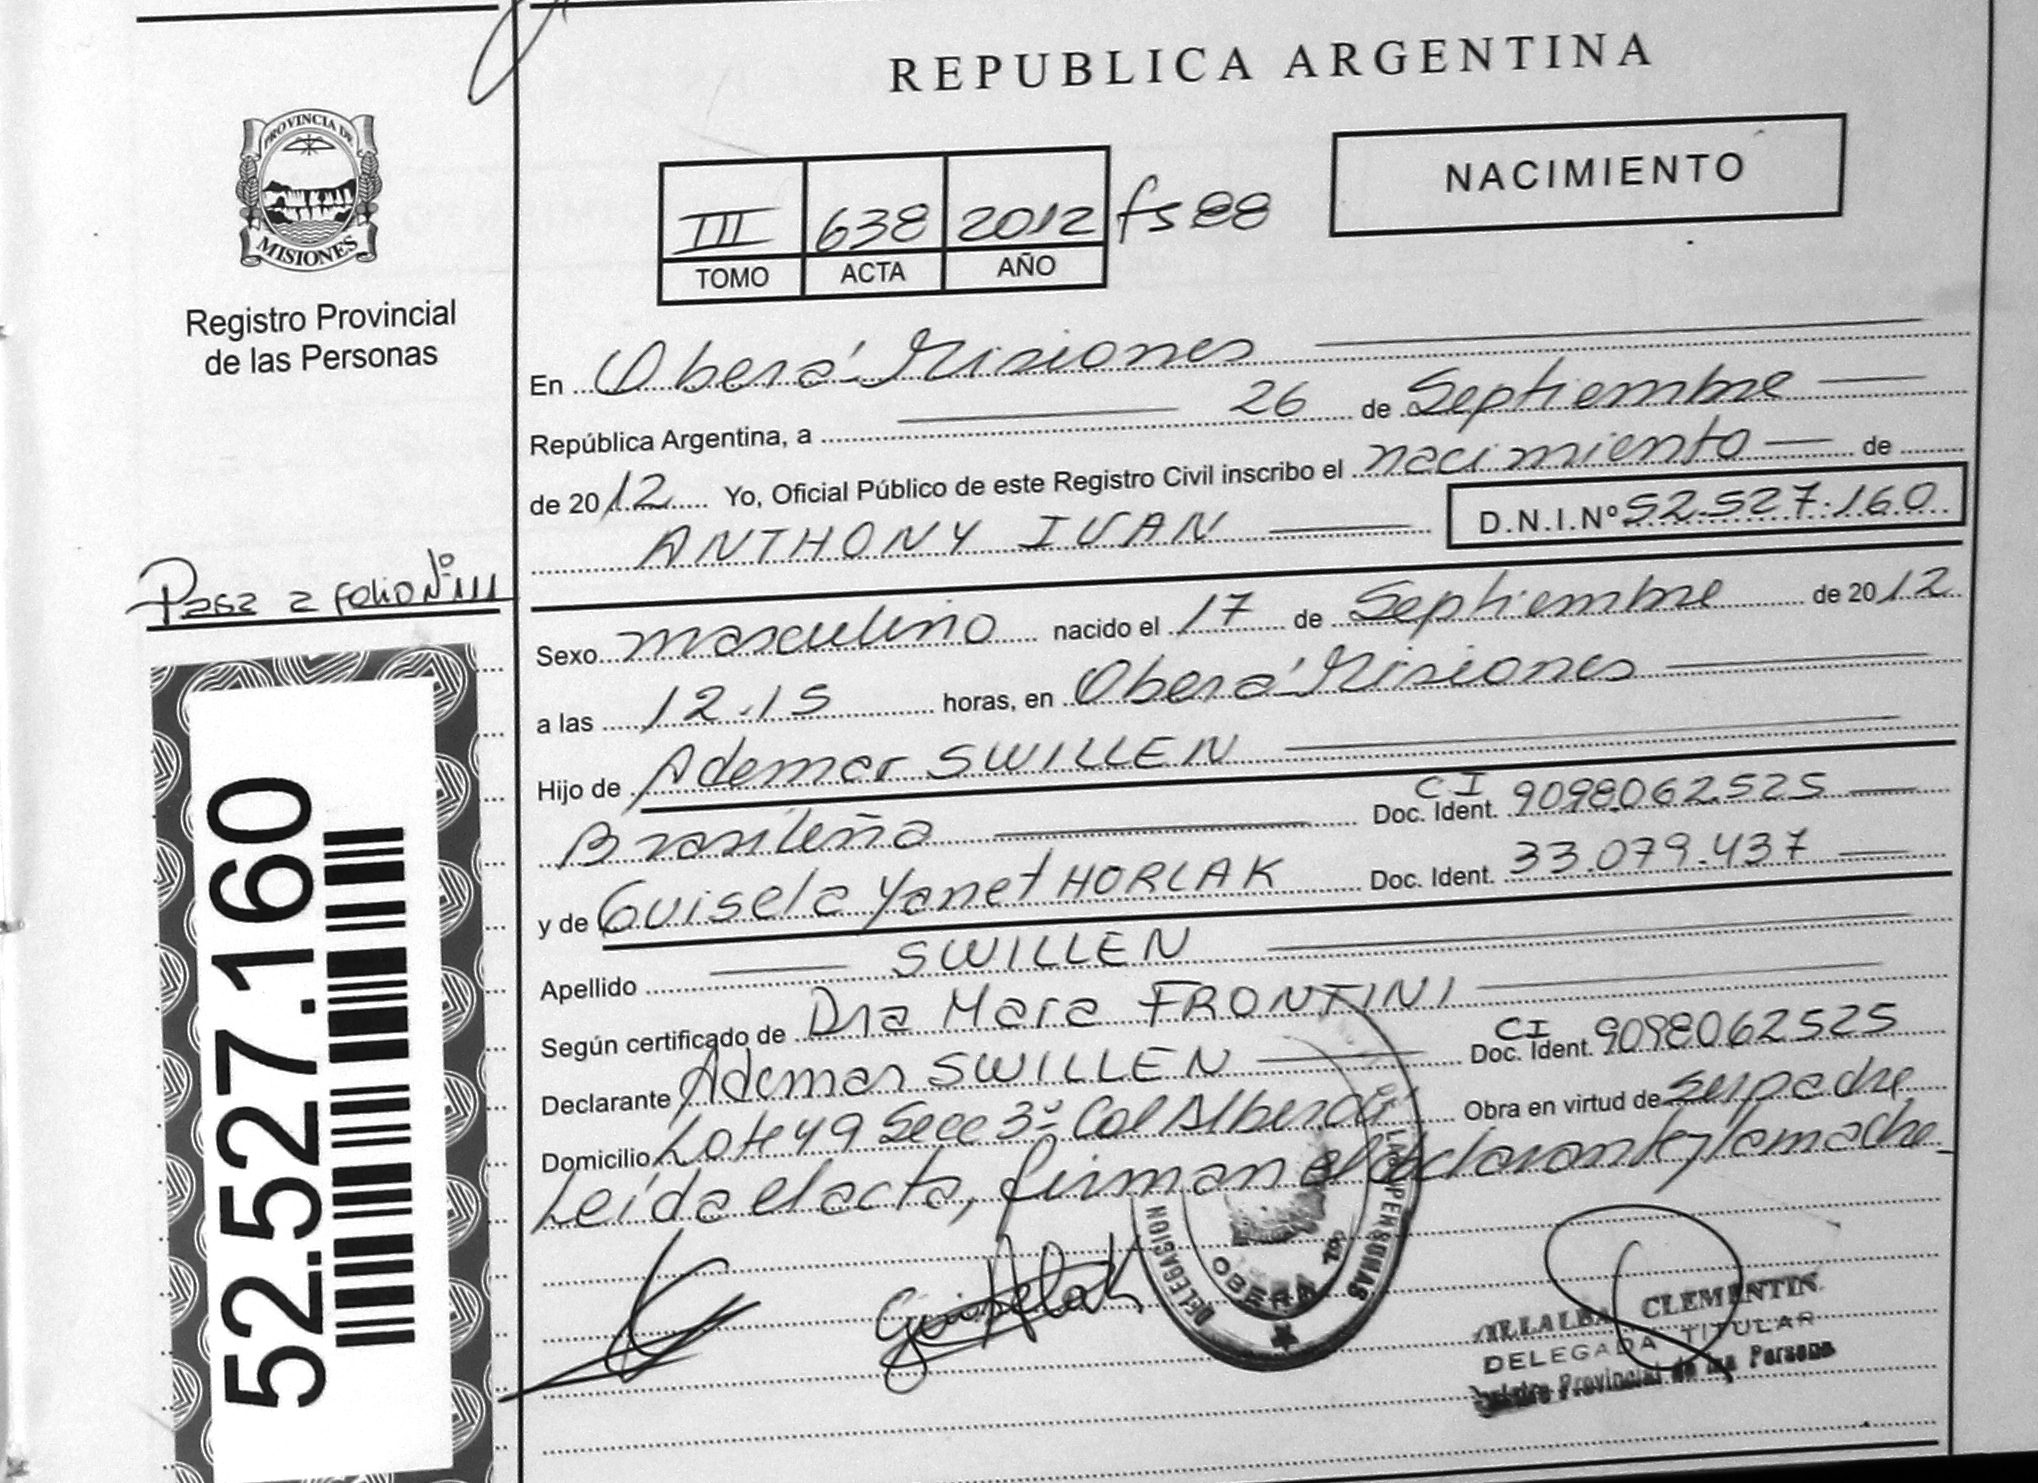 REPUBLICA ARGENTINA
PROVINCIA DE
MISIONES
Registro Provincial
de las Personas
NACIMIENTO
III 638 2012 fs 88
TOMO ACTA AÑO
En Oberá Misiones
República Argentina, a 26 de Septiembre
de 2012 Yo, Oficial Público de este Registro Civil inscribo el nacimiento de
ANTHONY IVAN D.N.I.Nº 52.527.160
Pasa a folio Nº 111
Sexo masculino nacido el 17 de Septiembre de 2012
a las 12.15 horas, en Oberá Misiones
Hijo de Ademar SWILLEN
Brasileña CI Doc. Ident. 9098062525
y de Guisela Yanet HORLAK Doc. Ident. 33.079.437
Apellido SWILLEN
Según certificado de Dra Mara FRONTINI
Declarante Ademar SWILLEN CI Doc. Ident. 9098062525
Domicilio Lote 49 Secc 3º Col Alberdi Obra en virtud de ser padre
Leída el acta, firman el declarante y la madre
52.527.160
DELEGACION
LAS PERSONAS
OBERA
VILLALBA CLEMENTIN
DELEGADA TITULAR
Registro Provincial de las Persona